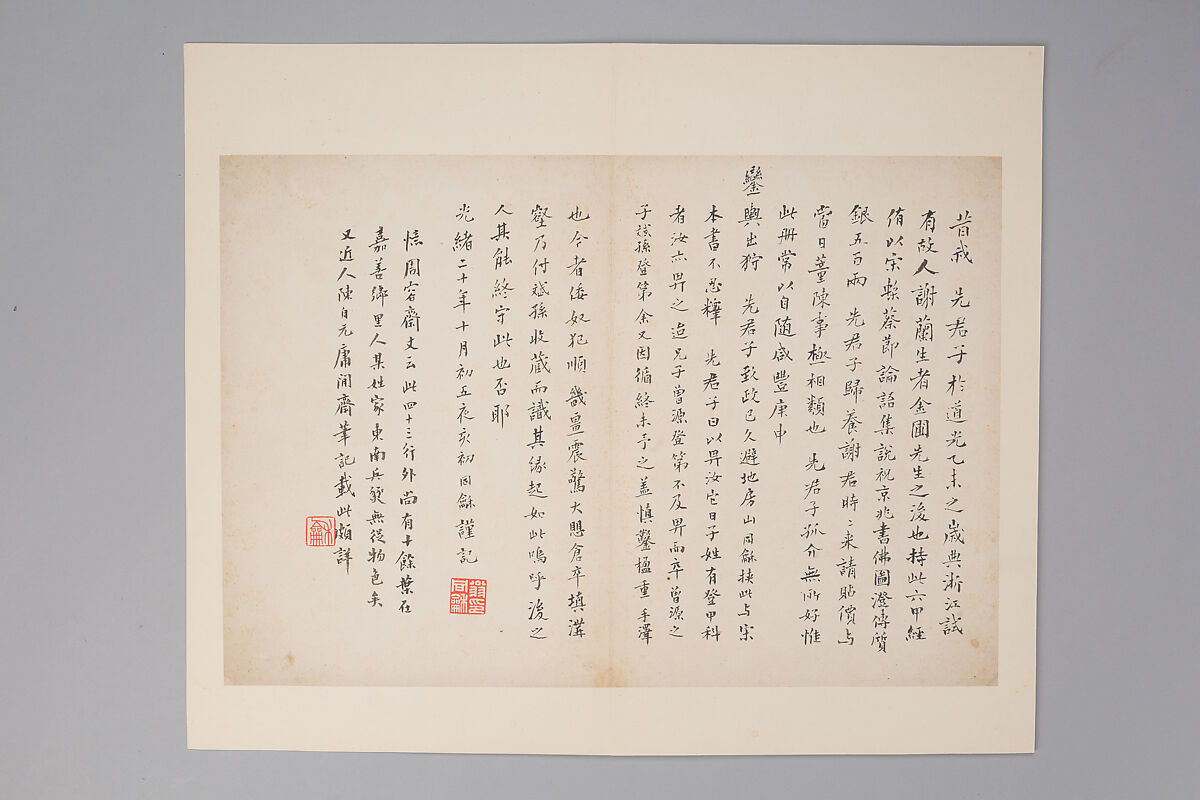 昔我 先君子於道光乙未之歲典浙江試
有故人謝蘭生者金圃先生之後也持此六甲經
侑以宋槧蔡節論語集說祝京兆書佛圖澄傳質
銀五百兩 先君子歸養謝君時〻来請貼價与
當日董陳事極相類也 先君子孤介無所好惟
此冊常以自隨咸豐庚申
鑾輿出狩 先君子致政已久避地房山同龢挾此与宋
本書不忍釋 先君子曰以畀汝它日子姓有登甲科
者汝亦畀之迨兄子曾源登第不及畀而卒曾源之
子斌孫登第余又因循終未予之盖慎鑿楹重手澤
也今者倭奴犯順畿畺震驚大思倉卒填溝
壑乃付斌孫收藏而識其緣起如此嗚呼後之
人其能終守此也否耶
光緒二十年十月初五夜亥初同龢謹記
憶周容齋丈云此四十三行外尚有十餘葉在
嘉善鄉里人某姓家東南兵燹無從物色矣
又近人陳自元庸閒齋筆記載此頗詳